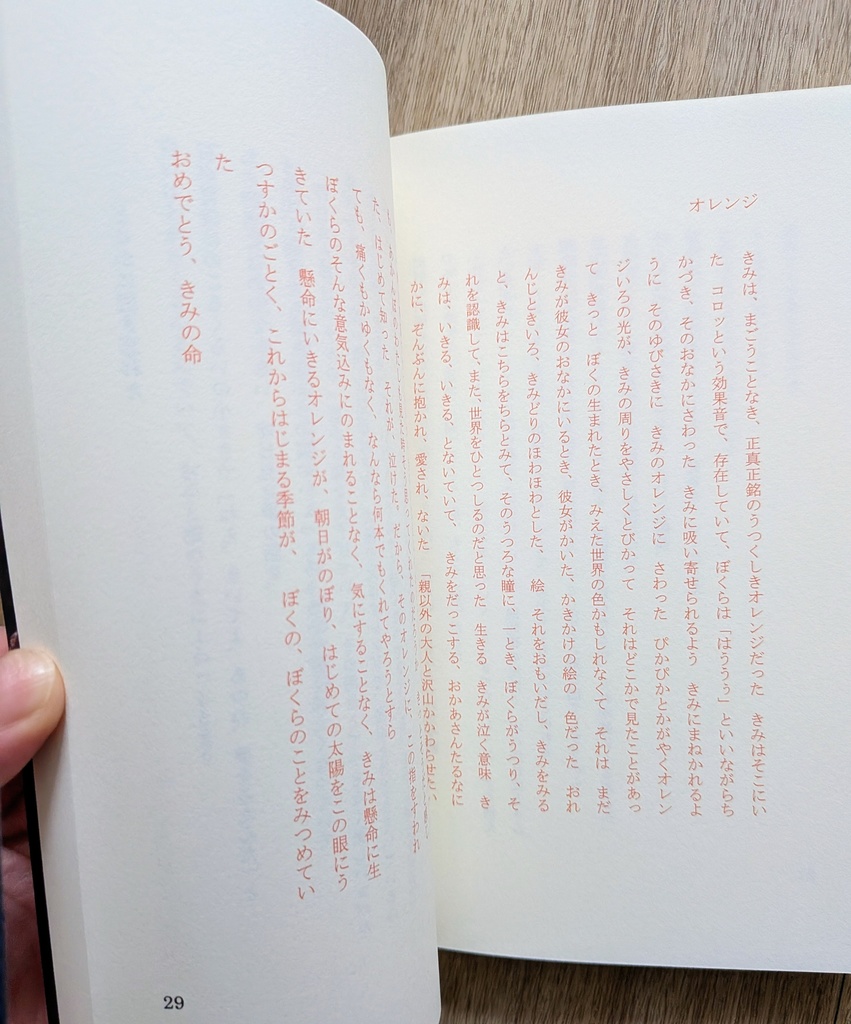 オレンジ
きみは、まごうことなき、正真正銘のうつくしきオレンジだった　きみはそこにい
た　コロッという効果音で、存在していて、ぼくらは「はううぅ」といいながらち
かづき、そのおなかにさわった　きみに吸い寄せられるよう　きみにまねかれるよ
うに　そのゆびさきに　きみのオレンジに　さわった　ぴかぴかとかがやくオレン
ジいろの光が、きみの周りをやさしくとびかって　それはどこかで見たことがあっ
て　きっと　ぼくの生まれたとき、みえた世界の色かもしれなくて　それは　まだ
きみが彼女のおなかにいるとき、彼女がかいた、かきかけの絵の　色だった　おれ
んじときいろ、きみどりのほわほわとした、　絵　それをおもいだし、きみをみる
と、きみはこちらをちらとみて、そのうつろな瞳に、一とき、ぼくらがうつり、そ
れを認識して、また、世界をひとつしるのだと思った　生きる　きみが泣く意味　き
みは、いきる、いきる、とないていて、　きみをだっこする、おかあさんたるなに
かに、ぞんぶんに抱かれ、愛され、ないた　「親以外の大人と沢山かかわらせたい
た、はじめて知った　それが、泣けた。だから、そのオレンジに、この指をすわれ
ても、痛くもかゆくもなく、なんなら何本でもくれてやろうとすら
ぼくらのそんな意気込みにのまれることなく、気にすることなく、きみは懸命に生
きていた　懸命にいきるオレンジが、朝日がのぼり、はじめての太陽をこの眼にう
つすかのごとく、これからはじまる季節が、　ぼくの、ぼくらのことをみつめてい
た
おめでとう、きみの命
29